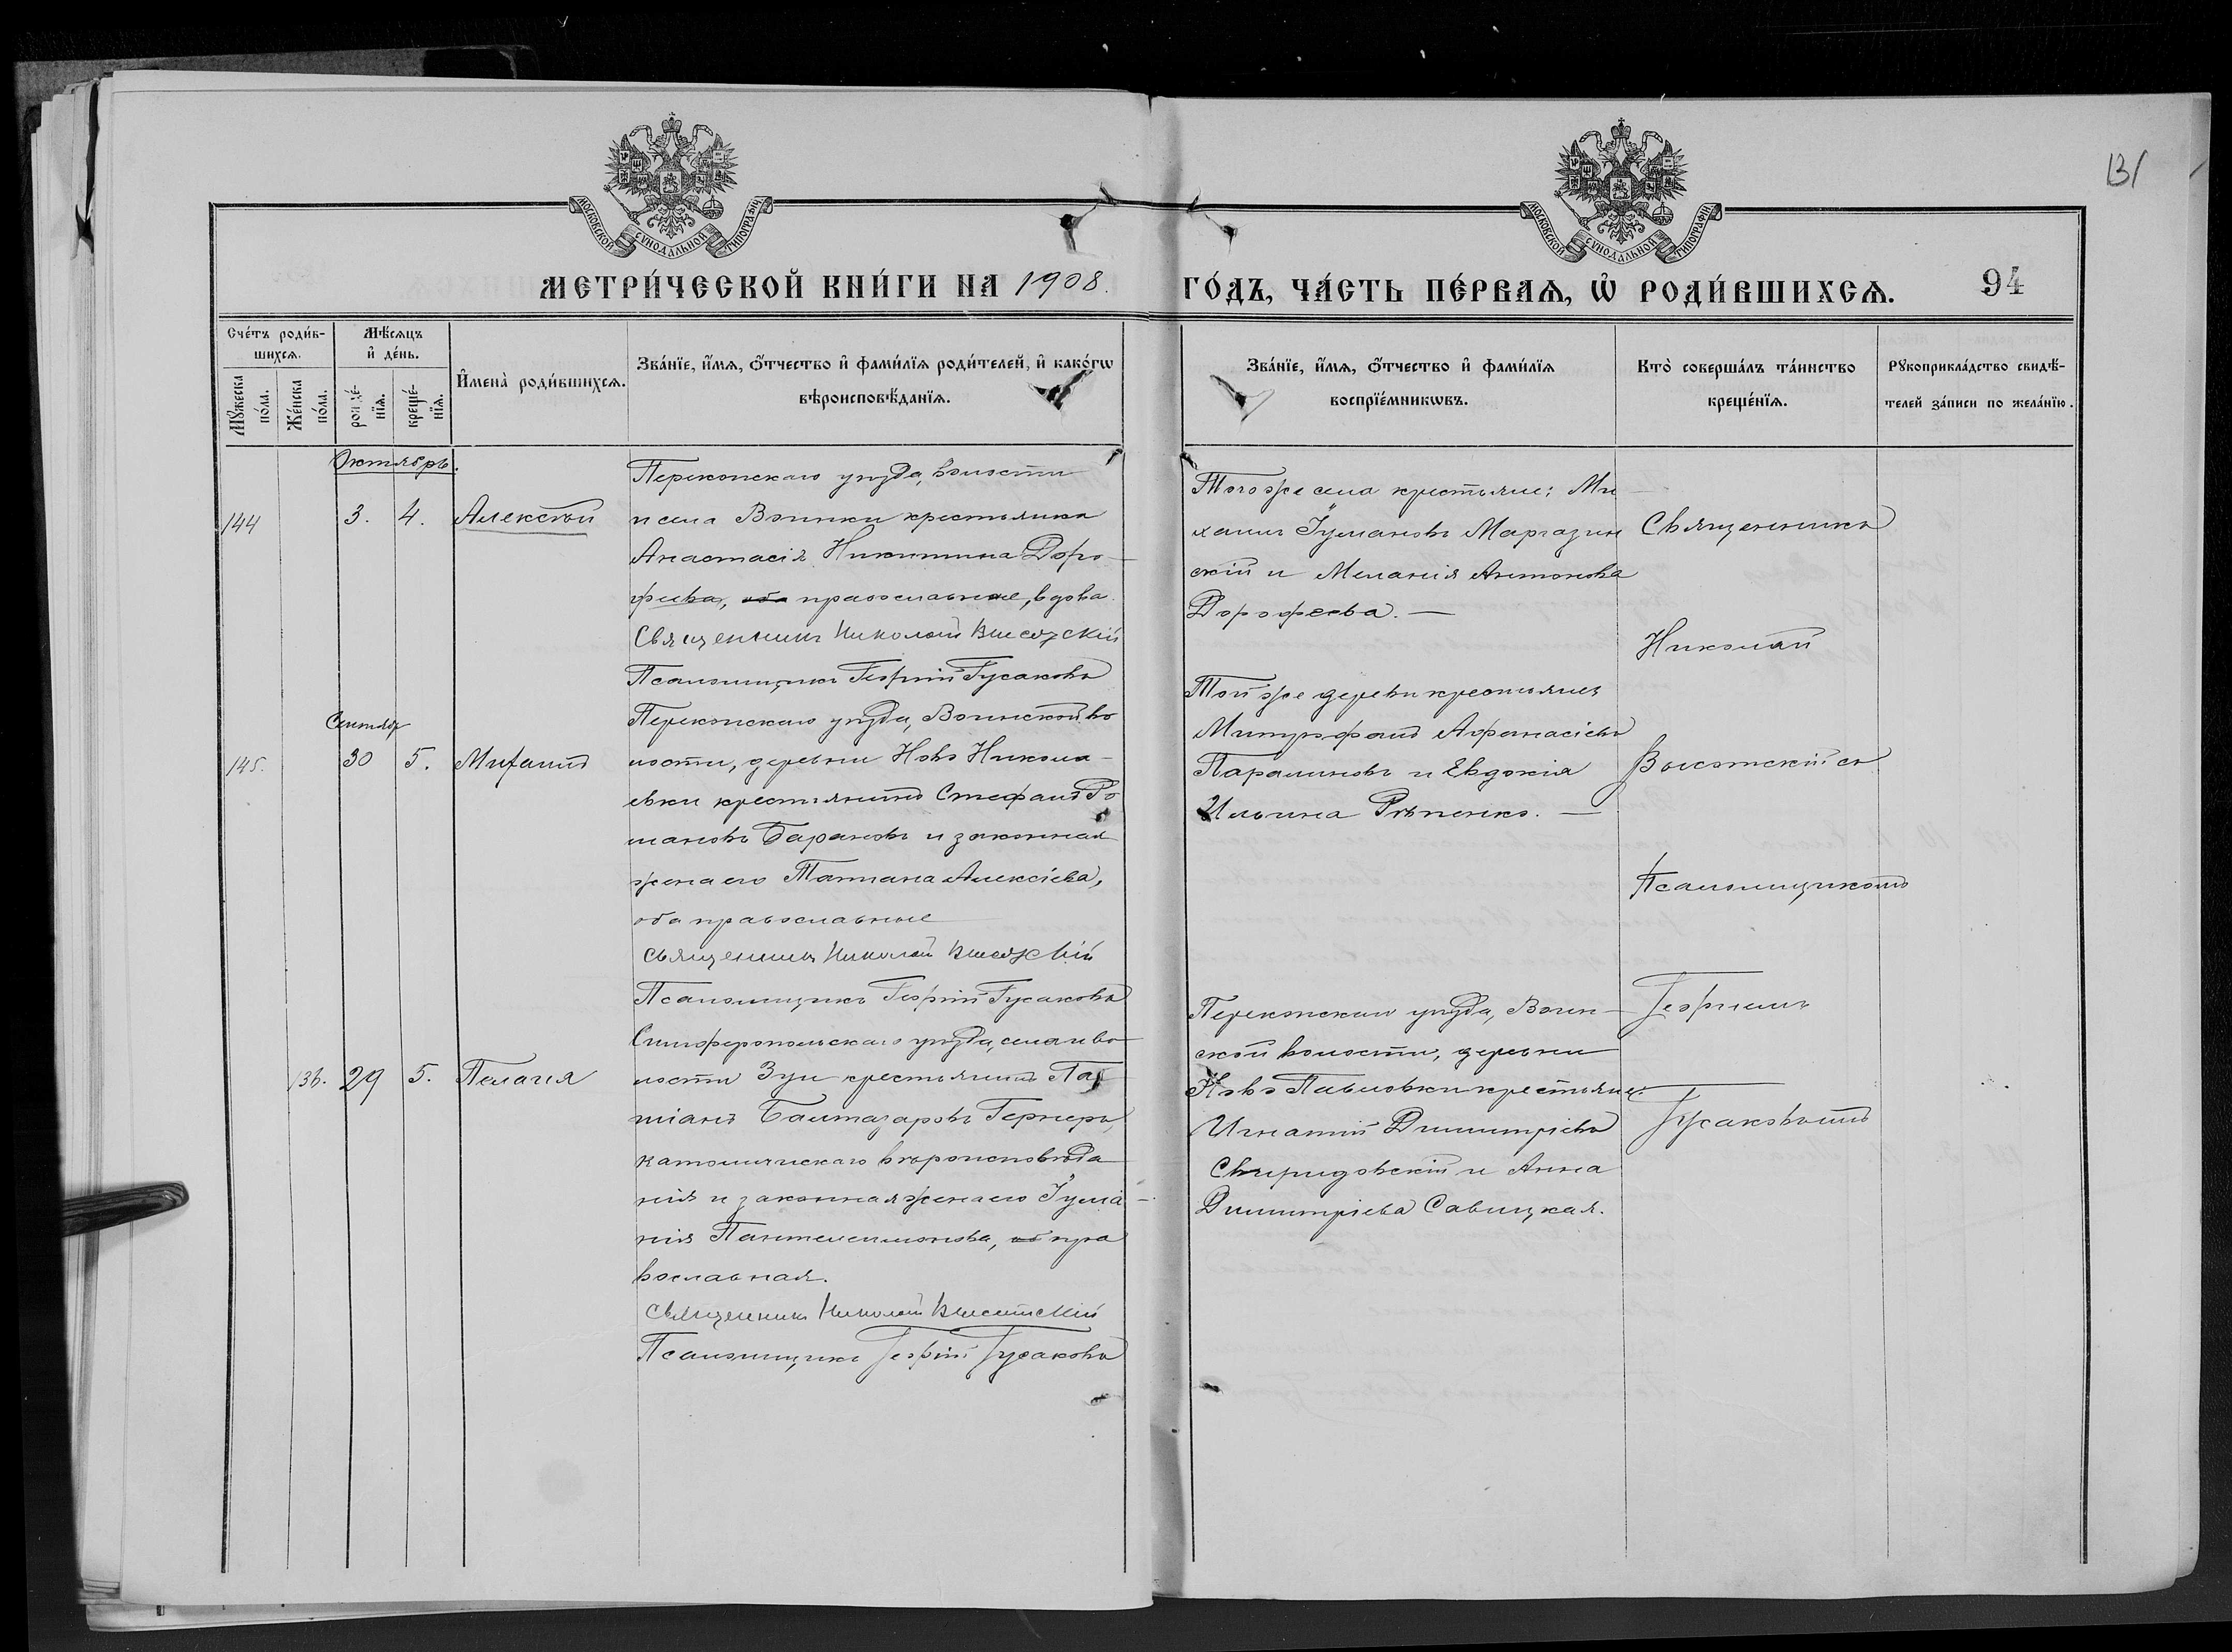 131
МОСКОВСКОЙ СѴНОДАЛЬНОЙ ТИПОГРАФІИ
МОСКОВСКОЙ СѴНОДАЛЬНОЙ ТИПОГРАФІИ
МЕТРИ́ЧЕСКОЙ КНИ́ГИ НА 1908.
ГО́ДЪ, ЧА́СТЬ ПЕ́РВАѦ, Ѡ҆ РОДИ́ВШИХСѦ. 94
Сче́тъ роди́в-
шихсѧ.
Мꙋ́жеска по́ла.
Же́нска по́ла.
Мѣ́сѧцъ
и҆ де́нь.
рожде́нїѧ.
креще́нїѧ.
И҆мена̀ роди́вшихсѧ.
Зва́нїе, и҆́мѧ, ѻ҆́тчество и҆ фами́лїѧ роди́телей, и҆ како́гѡ
вѣроисповѣ́данїѧ.
Зва́нїе, и҆́мѧ, ѻ҆́тчество и҆ фами́лїѧ
воспрїе́мникѡвъ.
Кто̀ соверша́лъ та́инство
креще́нїѧ.
Рꙋкоприкла́дство свидѣ́-
телей за́писи по жела́нїю.
Октябрь.
144
3. 4. Алексѣй
Перекопскаго уѣзда, волости
и села Воинки крестьянка
Анастасія Никитина Доро-
феева, оба православные, вдова.
Священникъ Николай Высотскій
Псаломщикъ Георгій Гусаковъ
Того же села крестьяне: Ми-
хаилъ Іулиановъ Маргазин
скій и Меланія Антонова
Дорофеева. —
Сентябр
145.
30 5. Митрофанъ
Перекопскаго уѣзда, Воинской во
лости, деревни Ново Никола-
евки крестьянинъ Стефанъ Ро
мановъ Барановъ и законная
жена его Татіана Алексіева,
оба православные
Священникъ Николай Высотскій
Псаломщикъ Георгій Гусаковъ
Той же деревни крестьяне
Митрофанъ Афанасіевъ
Параликовъ и Евдокія
Ильина Рѣпенко. —
136. 29 5. Пелагія
Симферопольскаго уѣзда, села и во
лости Зуи крестьянинъ
Балтазаровъ Гернеръ,
католическаго вѣроисповѣда
нія и законная жена его Іулiа-
нія Пантелеимонова, об пра
вославная.
Священникъ Николай Высотскій
Псаломщикъ Георгій Гусаковъ
Перекопскаго уѣзда, Воин-
ской волости, деревни
Ново Павловки крестьяне:
Игнатій Димитріевъ
Свиридовскій и Анна
Димитріева Савицкая.
Священникъ
Николай
Высотскій съ
Псаломщикомъ
Георгіемъ
Гусаковымъ